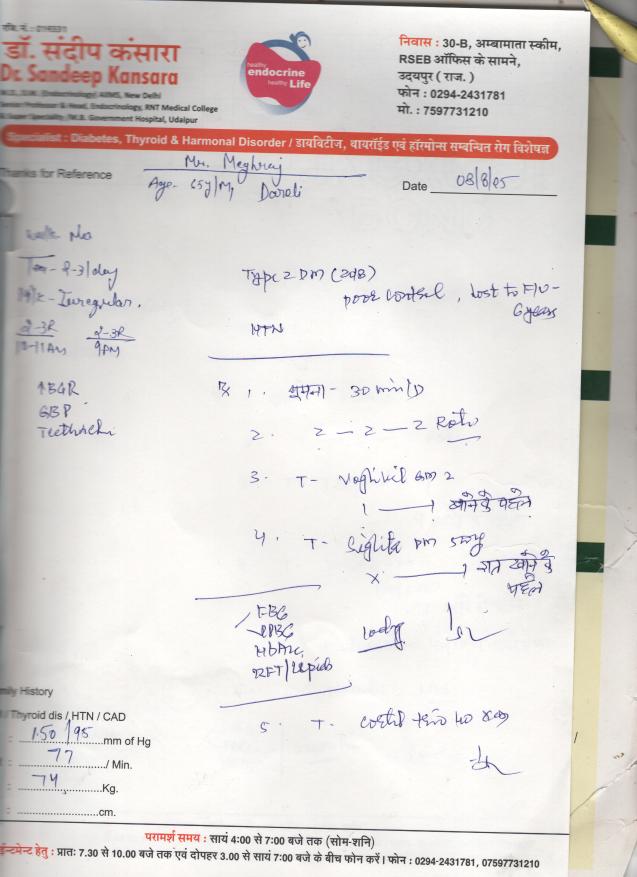 रजि. नं. : 014531
डॉ. संदीप कंसारा
Dr. Sandeep Kansara
M.D., D.M. (Endocrinology) AIIMS, New Delhi
Senior Professor & Head, Endocrinology, RNT Medical College
Super Speciality / M.B. Government Hospital, Udaipur
healthy
endocrine
healthy Life
निवास : 30-B, अम्बामाता स्कीम,
RSEB ऑफिस के सामने,
उदयपुर ( राज. )
फोन : 0294-2431781
मो. : 7597731210
Specialist : Diabetes, Thyroid & Harmonal Disorder / डायबिटीज, थायरॉईड एवं हॉरमोन्स सम्बन्धित रोग विशेषज्ञ
Thanks for Reference
Mr. Meghraj
Age- 65y/M,
Date 08/8/25
walk No
2-3/day
Irregular.
2-3R 2-3R
10-11AM 9PM
↑BGR
GBP
Type 2 DM
poor control, lost to F/U-
6 years
HTN
Rx 1. घूमना - 30 min/D
2. 2 — 2 — 2 Roti
3. T- GM 2
1 — 1 खाने के पहले
4. T- DM
x — 1 रात खाने के
पहले
FBG
PPBG
HbA1c
RFT/Lipids
today
mily History
/ Thyroid dis / HTN / CAD
: 150/95 mm of Hg
: 77 / Min.
: 74 Kg.
: cm.
5. T. 40
परामर्श समय : सायं 4:00 से 7:00 बजे तक (सोम-शनि)
ईन्टमेन्ट हेतु : प्रातः 7.30 से 10.00 बजे तक एवं दोपहर 3.00 से सायं 7:00 बजे के बीच फोन करें। फोन : 0294-2431781, 07597731210